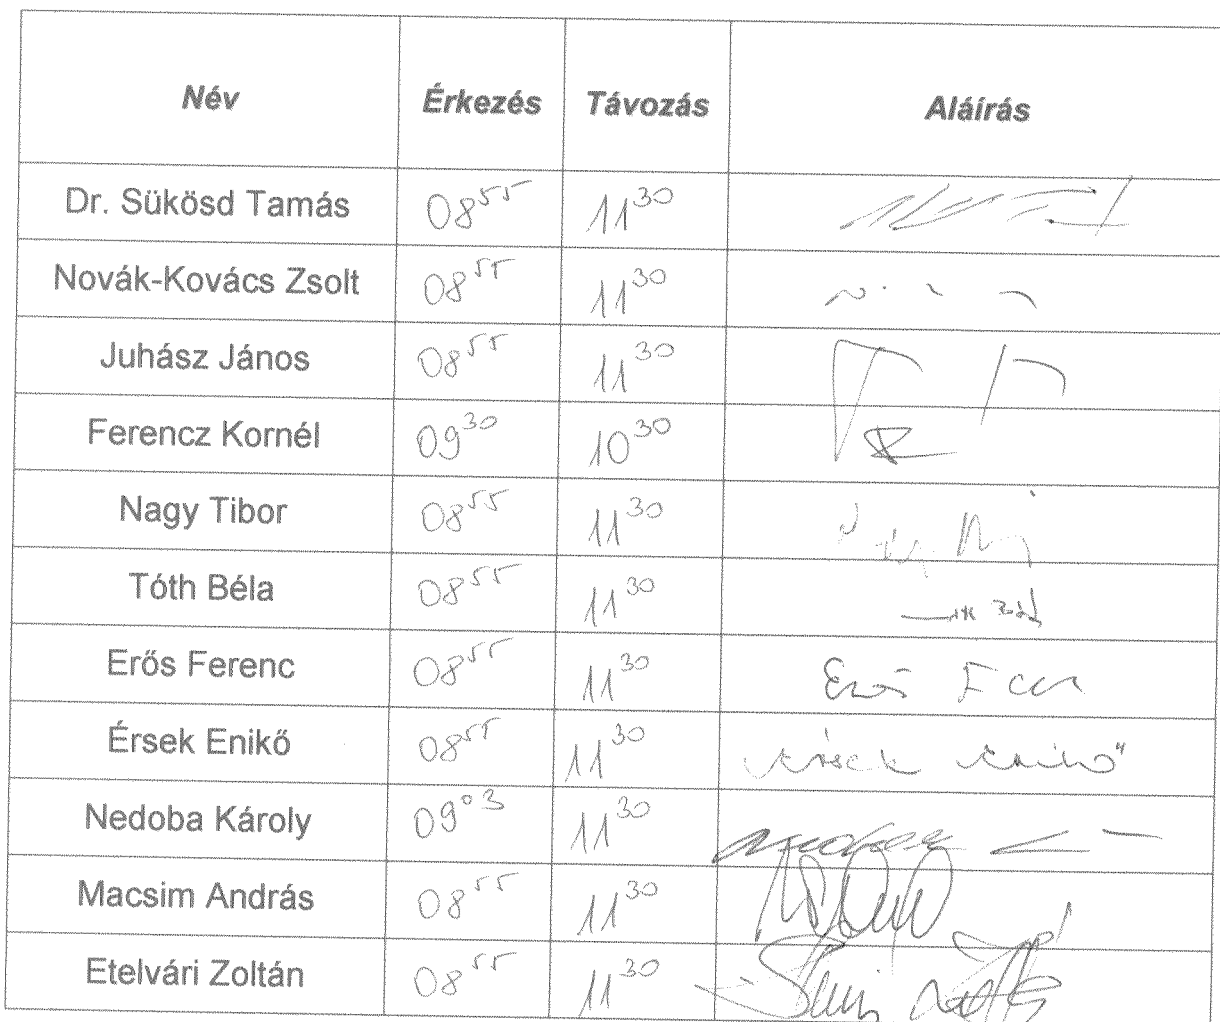 Név Érkezés Távozás Aláírás
Dr. Sükösd Tamás 08⁵⁵ 11³⁰
Novák-Kovács Zsolt 08⁵⁵ 11³⁰
Juhász János 08⁵⁵ 11³⁰
Ferencz Kornél 09³⁰ 10³⁰
Nagy Tibor 08⁵⁵ 11³⁰
Tóth Béla 08⁵⁵ 11³⁰
Erős Ferenc 08⁵⁵ 11³⁰ Erős
Érsek Enikő 08⁵⁵ 11³⁰ Érsek Enikő
Nedoba Károly 09⁰³ 11³⁰
Macsim András 08⁵⁵ 11³⁰
Etelvári Zoltán 08⁵⁵ 11³⁰